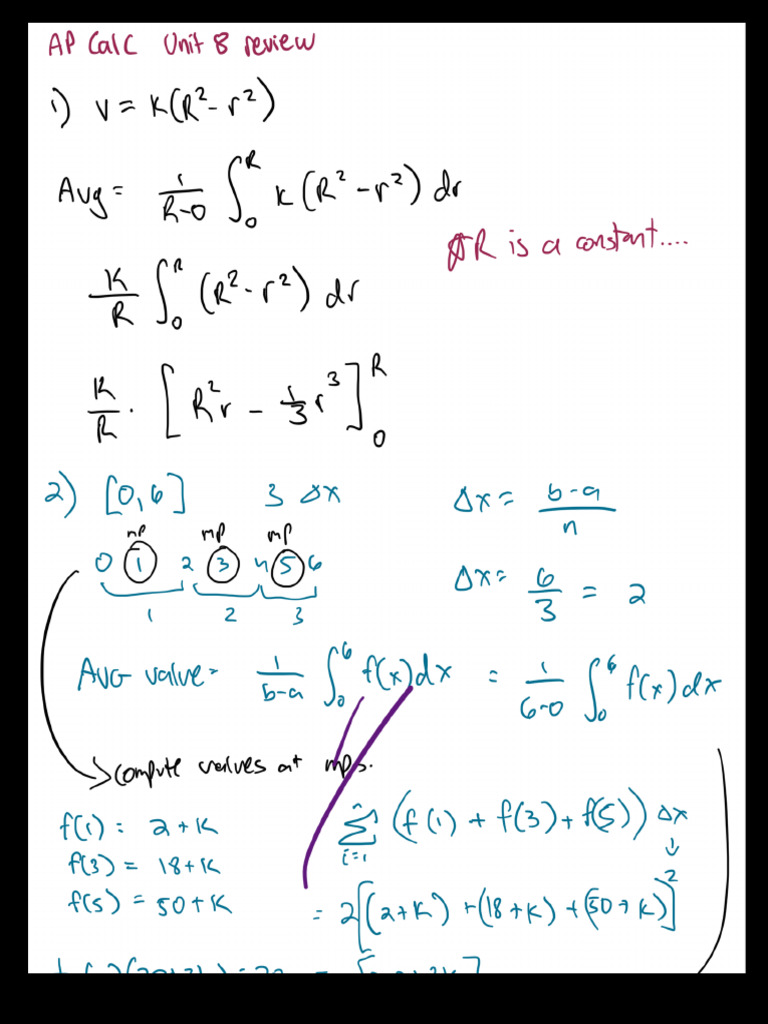 AP Calc Unit 8 review
1) V = K(R² - r²)
Avg = 1/(R-0) ∫₀ᴿ K(R² - r²) dr
R is a constant....
K/R ∫₀ᴿ (R² - r²) dr
K/R · [R²r - 1/3 r³]₀ᴿ
2) [0,6] 3 Δx
Δx = (b-a)/n
mp mp mp
0 1 2 3 4 5 6
1 2 3
Δx = 6/3 = 2
AVG value = 1/(b-a) ∫₀⁶ f(x)dx = 1/(6-0) ∫₀⁶ f(x)dx
→ compute values at mps.
f(1) = 2+K
f(3) = 18+K
f(5) = 50+K
Σ i=1 (f(1) + f(3) + f(5)) Δx
↓
2
= 2[(2+K) + (18+K) + (50+K)]